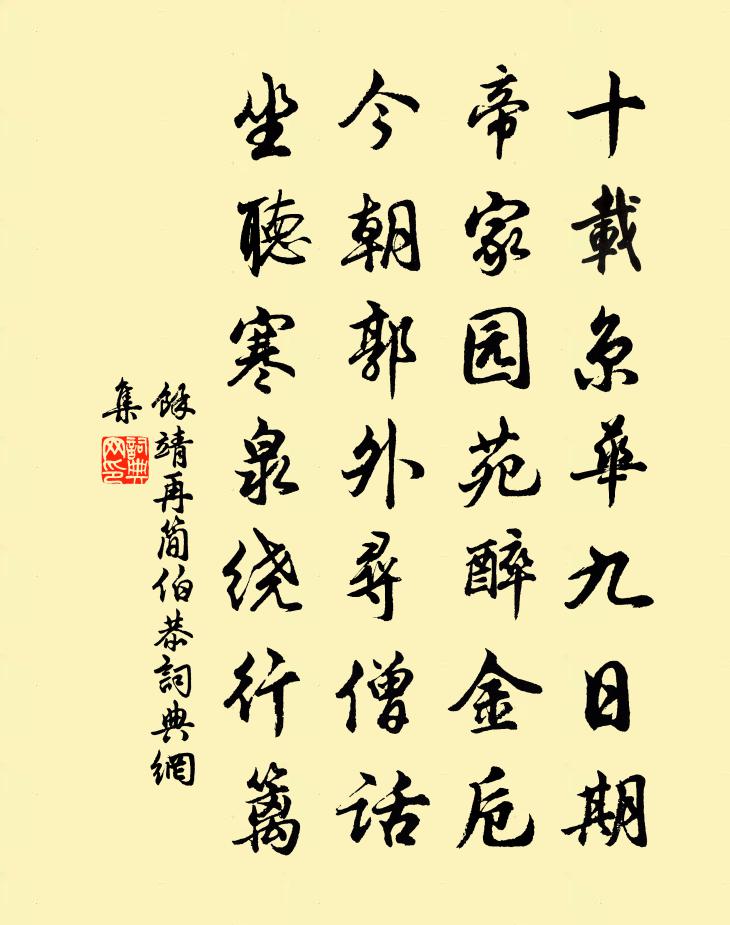 十載京華九日期
帝家园苑醉金卮
今朝郭外尋僧話
坐聽寒泉绕行篱
餘靖再简伯恭詞典網
集
詞典
网印